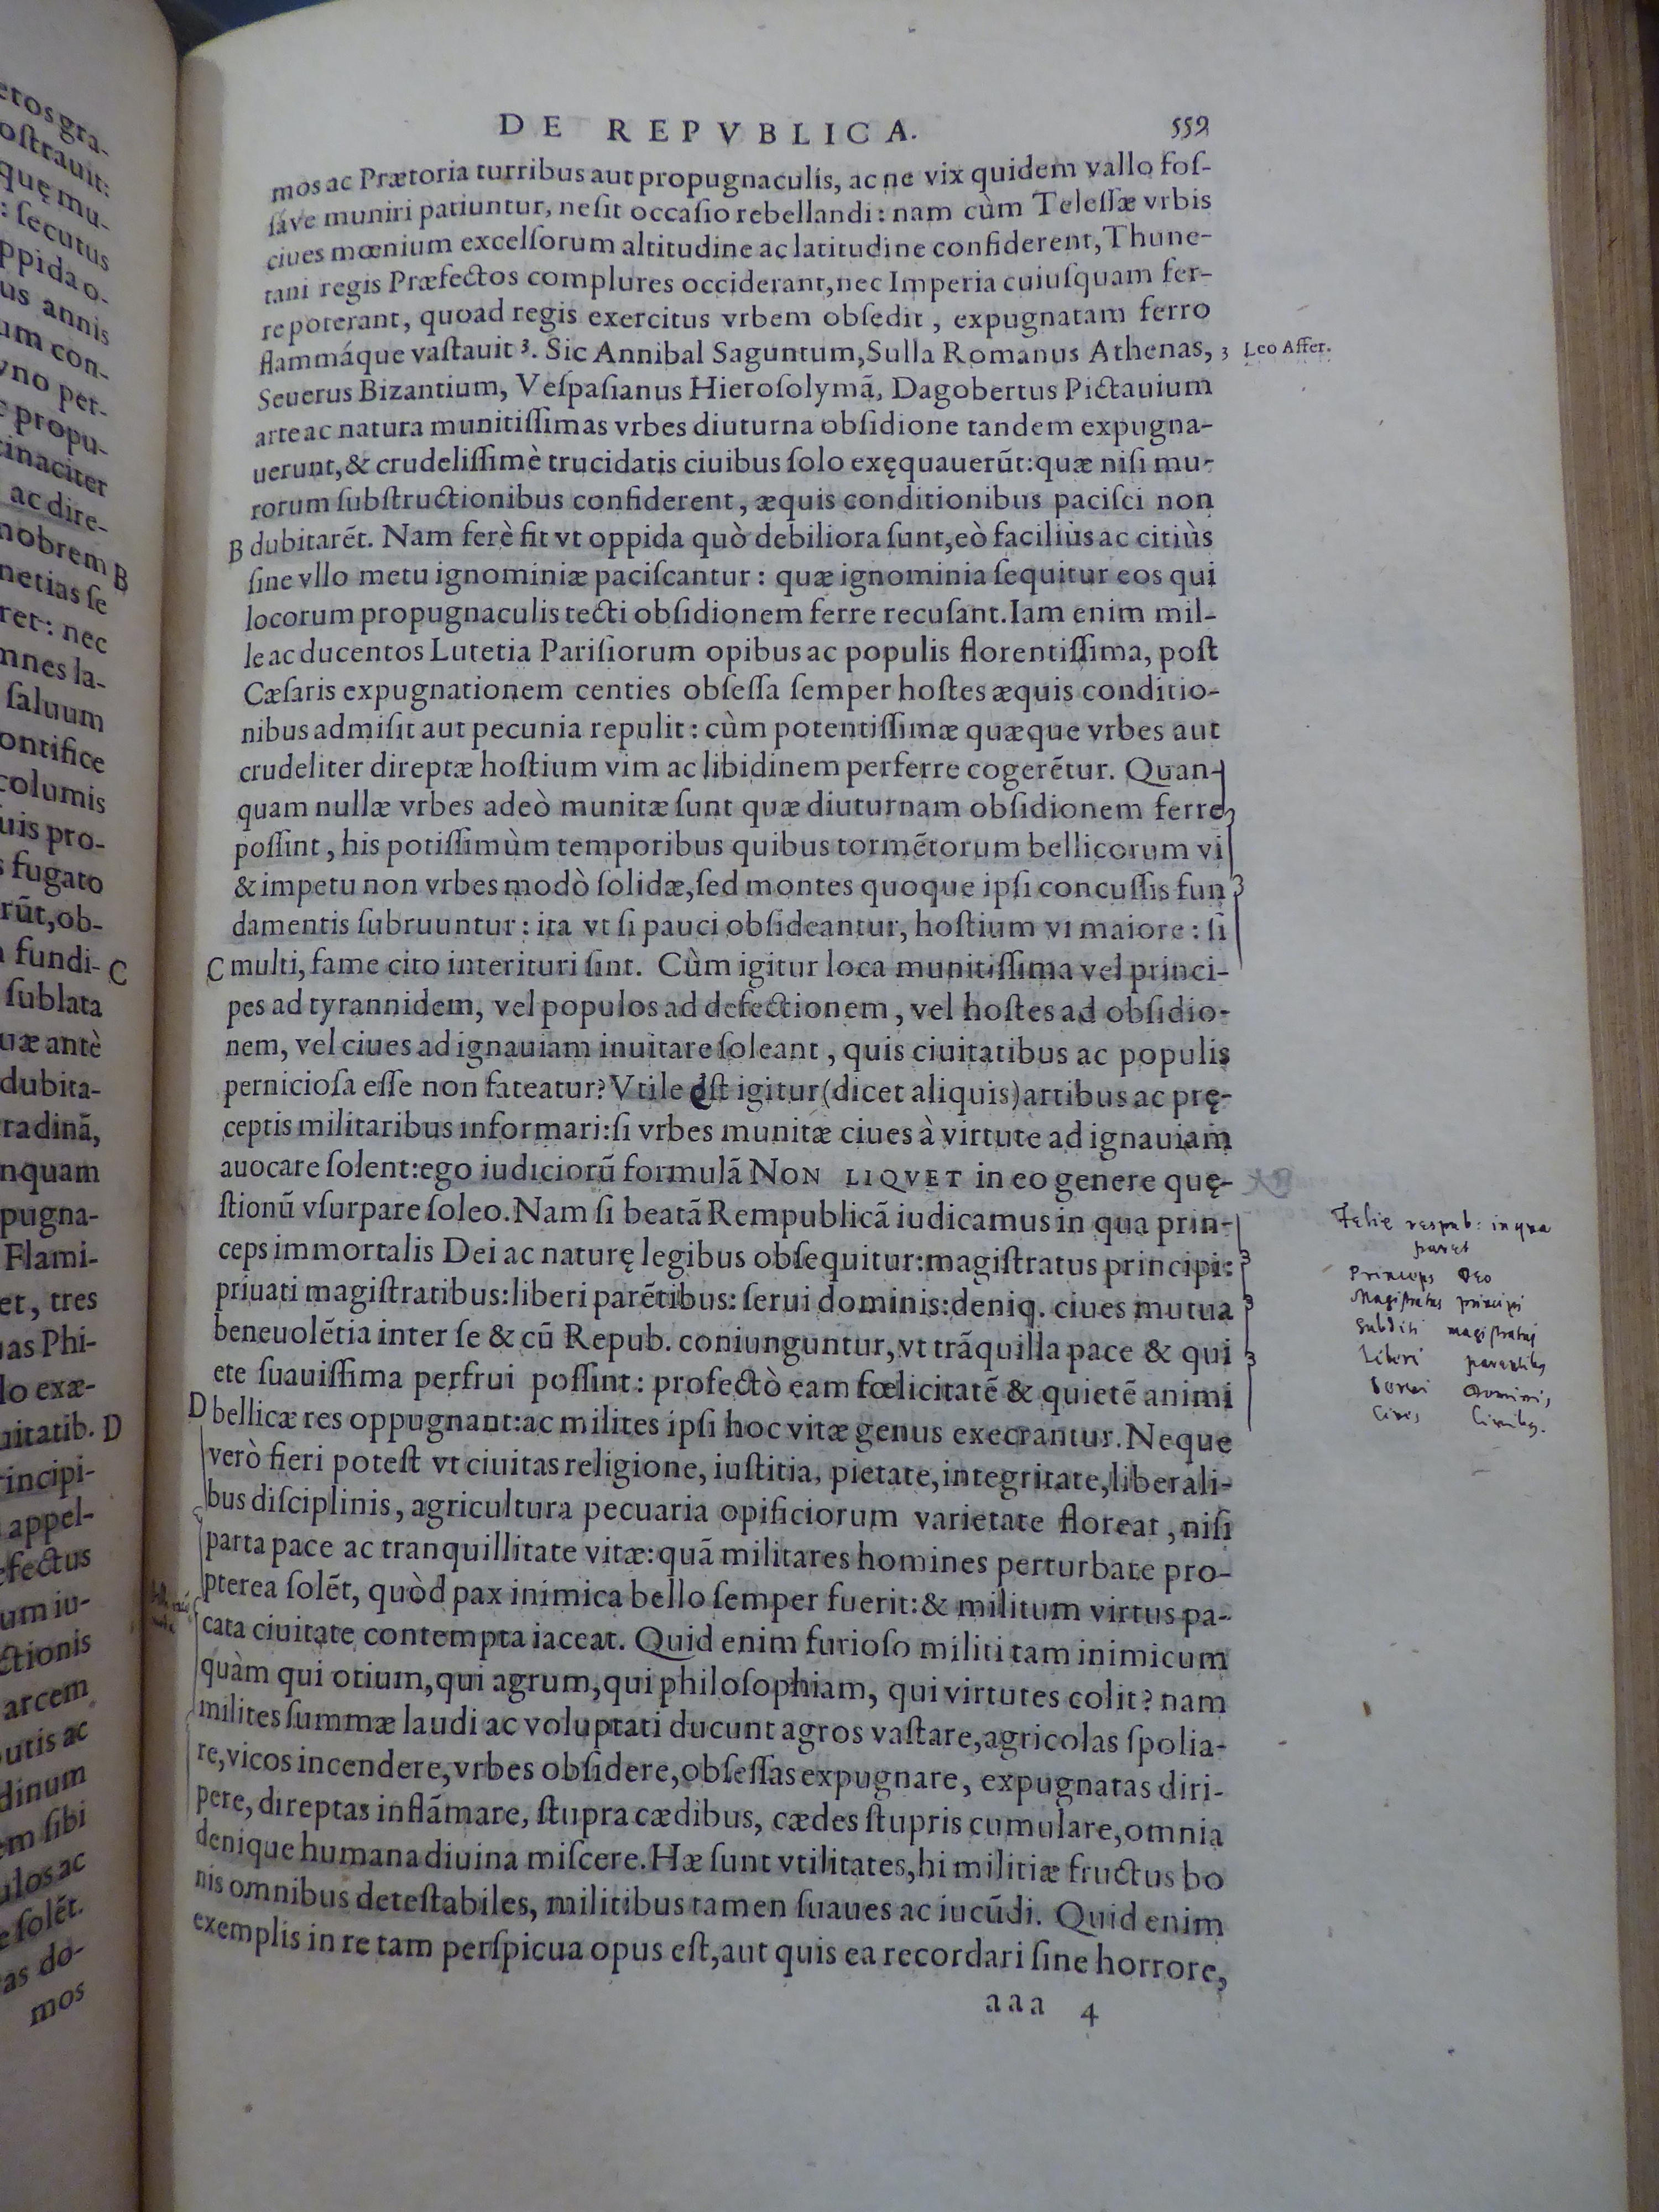 DE REPVBLICA. 559
mos ac Prætoria turribus aut propugnaculis, ac ne vix quidem vallo foſ-
ſáve muniri patiuntur, ne ſit occaſio rebellandi: nam cùm Teleſſæ vrbis
ciues mœnium excelſorum altitudine ac latitudine confiderent, Thune-
tani regis Præfectos complures occiderant, nec Imperia cuiuſquam fer-
re poterant, quoad regis exercitus vrbem obſedit, expugnatam ferro
flammáque vaſtauit 3. Sic Annibal Saguntum, Sulla Romanus Athenas,
3 Leo Affer.
Seuerus Bizantium, Veſpaſianus Hieroſolymã, Dagobertus Pictauium
arte ac natura munitiſſimas vrbes diuturna obſidione tandem expugna-
uerunt, & crudeliſſimè trucidatis ciuibus ſolo exęquauerũt: quæ niſi mu-
rorum ſubſtructionibus confiderent, æquis conditionibus paciſci non
B dubitarẽt. Nam ferè fit vt oppida quò debiliora ſunt, eò faciliùs ac citiùs
ſine vllo metu ignominiæ paciſcantur: quæ ignominia ſequitur eos qui
locorum propugnaculis tecti obſidionem ferre recuſant. Iam enim mil-
le ac ducentos Lutetia Pariſiorum opibus ac populis florentiſſima, poſt
Cæſaris expugnationem centies obſeſſa ſemper hoſtes æquis conditio-
nibus admiſit aut pecunia repulit: cùm potentiſſimæ quæque vrbes aut
crudeliter direptæ hoſtium vim ac libidinem perferre cogerẽtur. Quan-
quam nullæ vrbes adeò munitæ ſunt quæ diuturnam obſidionem ferre
poſſint, his potiſſimùm temporibus quibus tormẽtorum bellicorum vi
& impetu non vrbes modò ſolidæ, ſed montes quoque ipſi concuſſis fun
damentis ſubruuntur: ita vt ſi pauci obſideantur, hoſtium vi maiore: ſi
C multi, fame cito interituri ſint. Cùm igitur loca munitiſſima vel princi-
pes ad tyrannidem, vel populos ad defectionem, vel hoſtes ad obſidio-
nem, vel ciues ad ignauiam inuitare ſoleant, quis ciuitatibus ac populis
pernicioſa eſſe non fateatur? Vtile eſt igitur (dicet aliquis) artibus ac prę-
ceptis militaribus informari: ſi vrbes munitæ ciues à virtute ad ignauiam
auocare ſolent: ego iudiciorũ formulã NON LIQVET in eo genere quę-
ſtionũ vſurpare ſoleo. Nam ſi beatã Rempublicã iudicamus in qua prin-
ceps immortalis Dei ac naturę legibus obſequitur: magiſtratus principi:
priuati magiſtratibus: liberi parẽtibus: ſerui dominis: deniq. ciues mutua
beneuolẽtia inter ſe & cũ Repub. coniunguntur, vt trãquilla pace & qui
ete ſuauiſſima perfrui poſſint: profectò eam fœlicitatẽ & quietẽ animi
D bellicæ res oppugnant: ac milites ipſi hoc vitæ genus execrantur. Neque
verò fieri poteſt vt ciuitas religione, iuſtitia, pietate, integritate, liberali-
bus diſciplinis, agricultura pecuaria opificiorum varietate floreat, niſi
parta pace ac tranquillitate vitæ: quã militares homines perturbare pro-
pterea ſolẽt, quòd pax inimica bello ſemper fuerit: & militum virtus pa-
cata ciuitate contempta iaceat. Quid enim furioſo militi tam inimicum
quàm qui otium, qui agrum, qui philoſophiam, qui virtutes colit? nam
milites ſummæ laudi ac voluptati ducunt agros vaſtare, agricolas ſpolia-
re, vicos incendere, vrbes obſidere, obſeſſas expugnare, expugnatas diri-
pere, direptas inflãmare, ſtupra cædibus, cædes ſtupris cumulare, omnia
denique humana diuina miſcere. Hæ ſunt vtilitates, hi militiæ fructus bo
nis omnibus deteſtabiles, militibus tamen ſuaues ac iucũdi. Quid enim
exemplis in re tam perſpicua opus eſt, aut quis ea recordari ſine horrore,
aaa 4
Felix respub: in qua
paret
Princeps Deo
Magistratus principi
Subditi magistratui
Liberi parentibus
Servi Dominis
Cives Civibus.
eros gra-
oſtrauit:
quę mu-
: ſecutus
ppida o-
us annis
um con-
vno per-
propu-
cinaciter
ac dire-
nobrem B
netias ſe
ret: nec
mnes la-
ſaluum
ontifice
columis
uis pro-
s fugato
rũt, ob-
fundi- C
ſublata
uæ antè
dubita-
radinã,
nquam
pugna-
Flami-
et, tres
as Phi-
lo exæ-
uitatib. D
rincipi-
appel-
efectus
um iu-
ctionis
arcem
utis ac
dinum
em ſibi
ulos ac
e ſolẽt.
as do-
mos